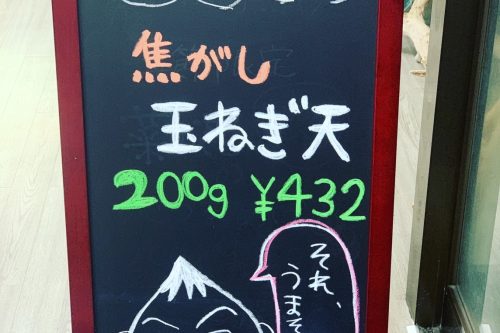 焦がし
玉ねぎ天
200g ¥432
それ、
うまそ